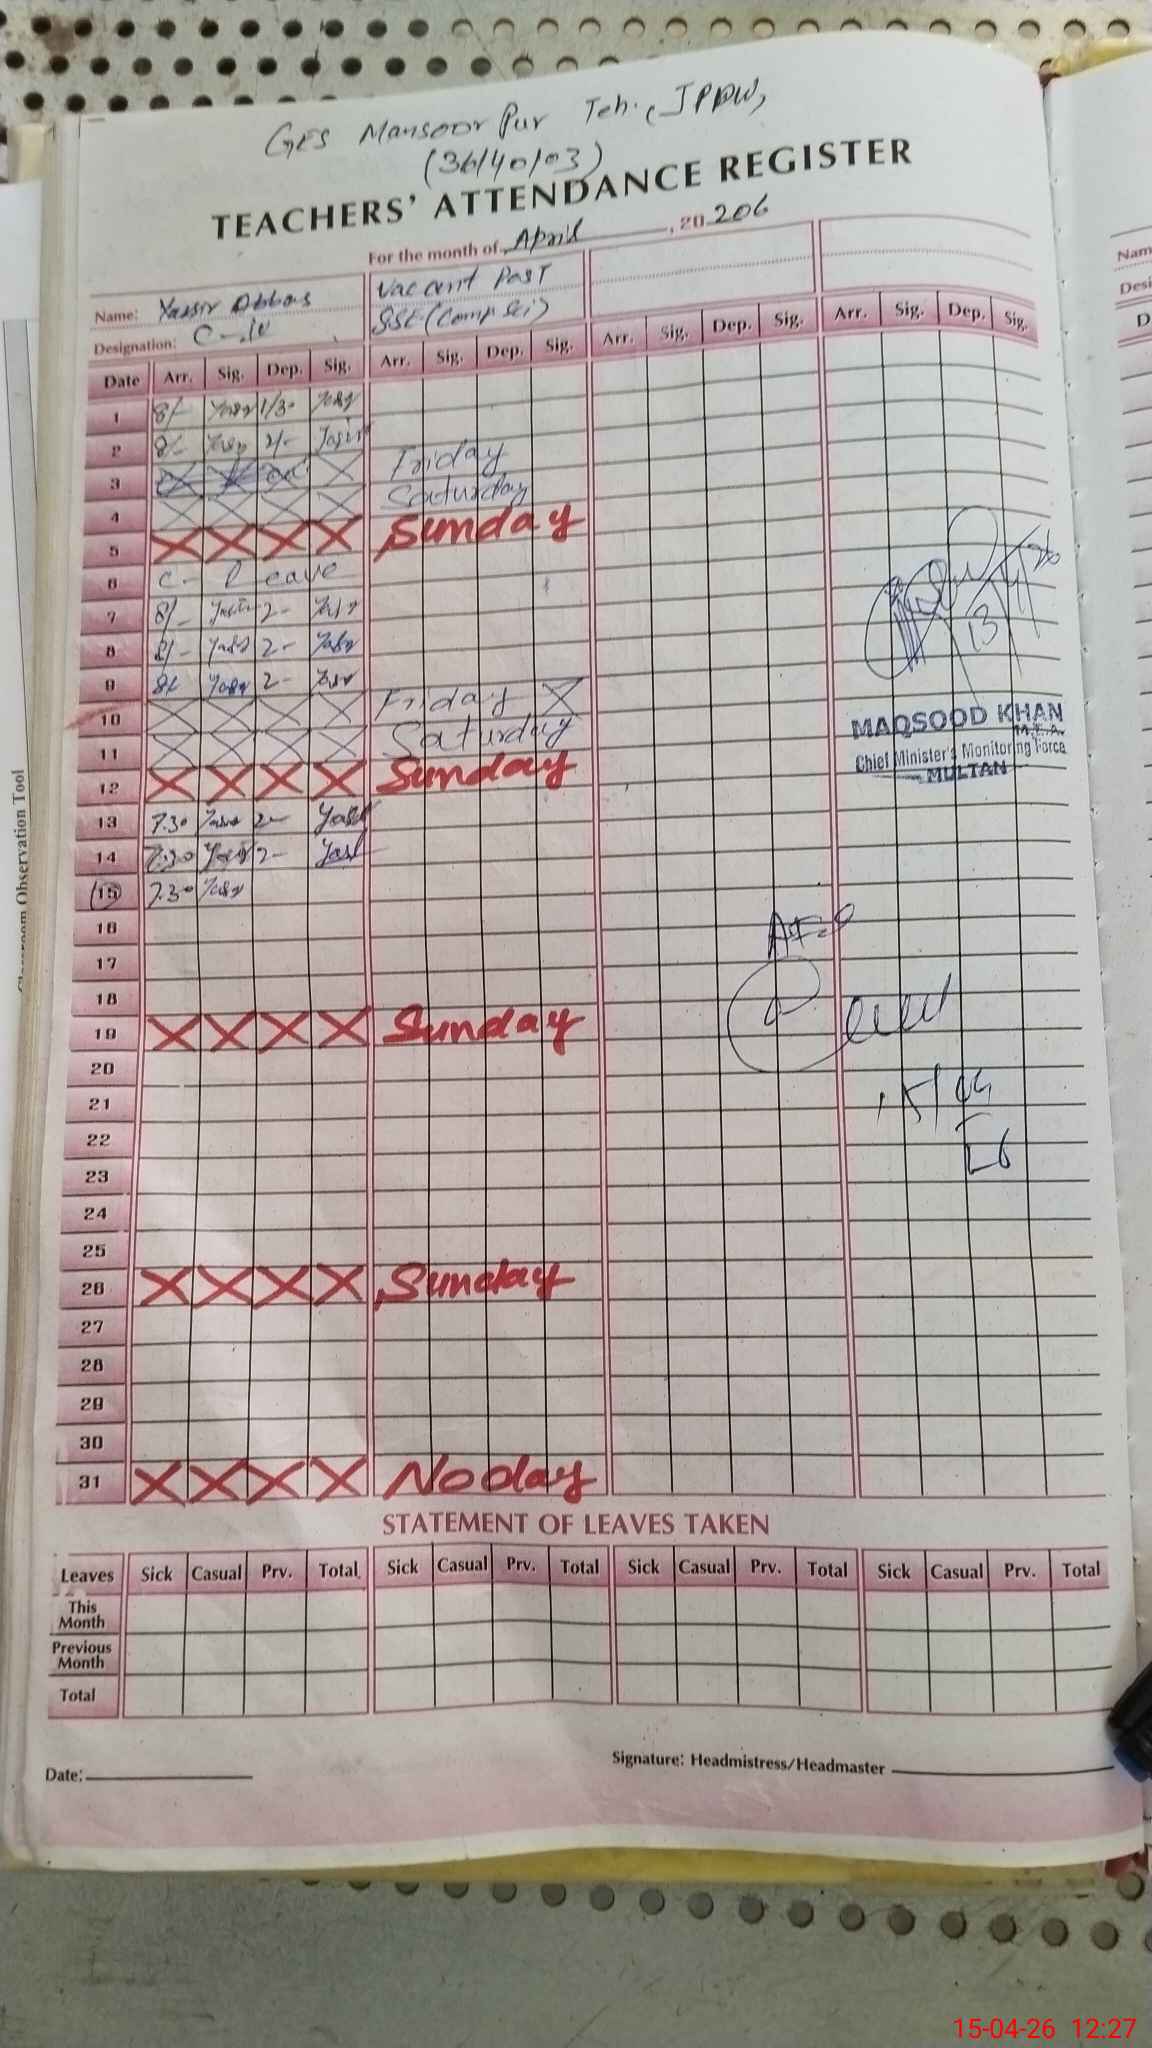 GES Mansoor Pur Teh. JPPW,
(36/40/03)
TEACHERS' ATTENDANCE REGISTER
For the month of April, 20 206
Name: Yassir Abbas
Vacant Post
Designation: C-IV
SSE (Comp Sci)
Date Arr. Sig. Dep. Sig. Arr. Sig. Dep. Sig. Arr. Sig. Dep. Sig. Arr. Sig. Dep. Sig.
1 8/- Yasir 1/30 Yasir
2 8/- Yasir 2/- Yasir
3 Friday
4 Saturday
5 Sunday
6 C- Leave
7 8/- Yasir 2- Yasir
8 8/- Yasir 2- Yasir
9 8/- Yasir 2- Yasir
10 Friday
11 Saturday
12 Sunday
13 7.30 Yasir 2- Yasir
14 7.30 Yasir 2- Yasir
15 7.30 Yasir
16
17
18
19 Sunday
20
21
22
23
24
25
26 Sunday
27
28
29
30
31 No day
13/4/26
MAQSOOD KHAN
M.E.A.
Chief Minister's Monitoring Force
MULTAN
15/04
26
STATEMENT OF LEAVES TAKEN
Leaves Sick Casual Prv. Total Sick Casual Prv. Total Sick Casual Prv. Total Sick Casual Prv. Total
This Month
Previous Month
Total
Date:
Signature: Headmistress/Headmaster
Classroom Observation Tool
Nam
Desi
D
15-04-26 12:27